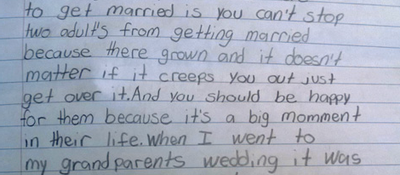 to get married is you can't stop
two adult's from getting married
because there grown and it doesn't
matter if it creeps you out just
get over it.And you should be happy
for them because it's a big momment
in their life.When I went to
my grandparents wedding it was